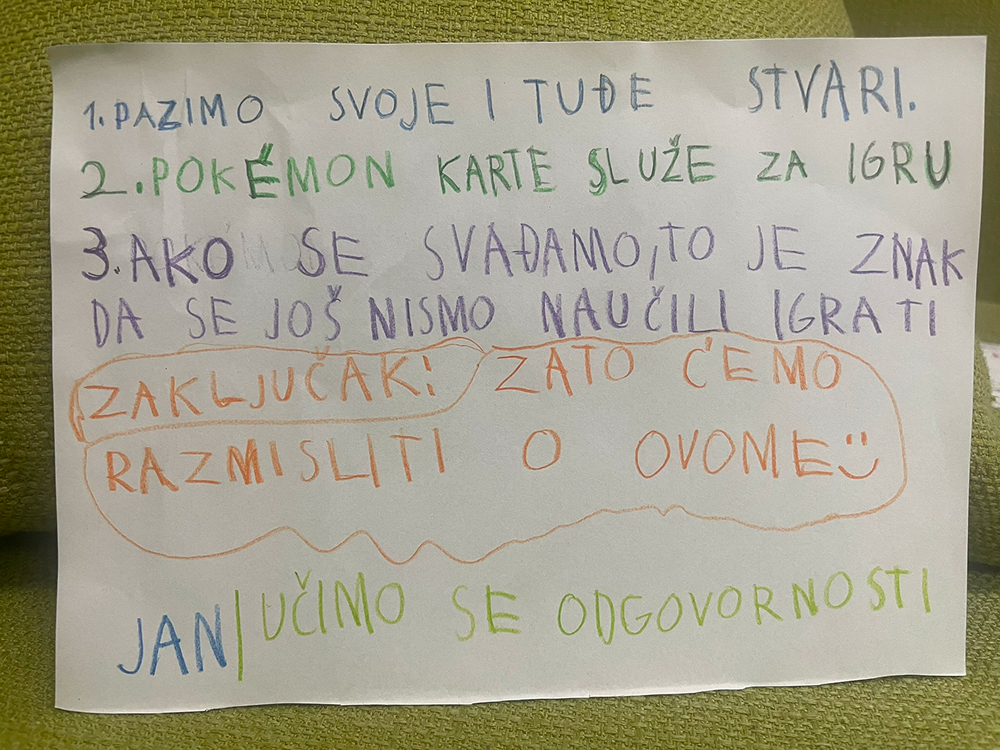 1. PAZIMO SVOJE I TUĐE STVARI.
2. POKÉMON KARTE SLUŽE ZA IGRU
3. AKO SE SVAĐAMO, TO JE ZNAK
DA SE JOŠ NISMO NAUČILI IGRATI
ZAKLJUČAK: ZATO ĆEMO
RAZMISLITI O OVOME :)
JAN | UČIMO SE ODGOVORNOSTI